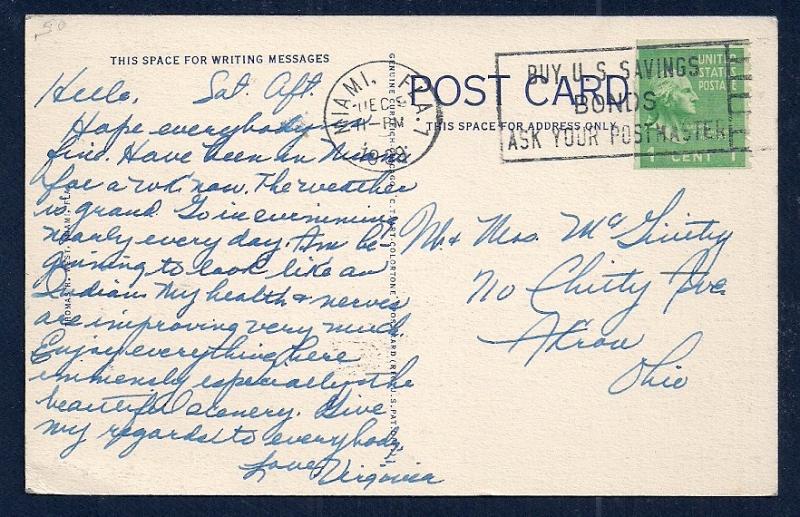 THIS SPACE FOR WRITING MESSAGES
Hello, Sat. Aft.
Hope everybody is
fine. Have been in Miami
for a wk. now. The weather
is grand. Go in swimming
nearly every day. Am be-
gining to look like an
Indian. My health & nerves
are improving very much.
Enjoy everything here
immensly especially the
beautiful scenery. Give
my regards to everybody.
Love, Virginia
THOMAS R. WEST, MIAMI, FLA.
GENUINE CURTEICH-CHICAGO "C.T. ART-COLORTONE" POST CARD (REG. U.S. PAT. OFF.)
POST CARD
THIS SPACE FOR ADDRESS ONLY
MIAMI, FLA. 7
DEC
PM
BUY U.S. SAVINGS
BONDS
ASK YOUR POSTMASTER
UNITED
STATES
POSTAGE
1 CENT 1
Mr & Mrs. Mc Ginty
No Chitty Ave.
Akron
Ohio